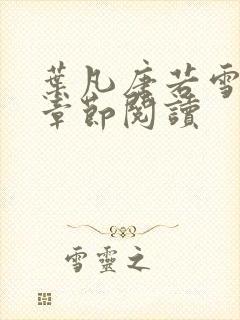 葉凡唐若雪
章節閱讀
雪靈之